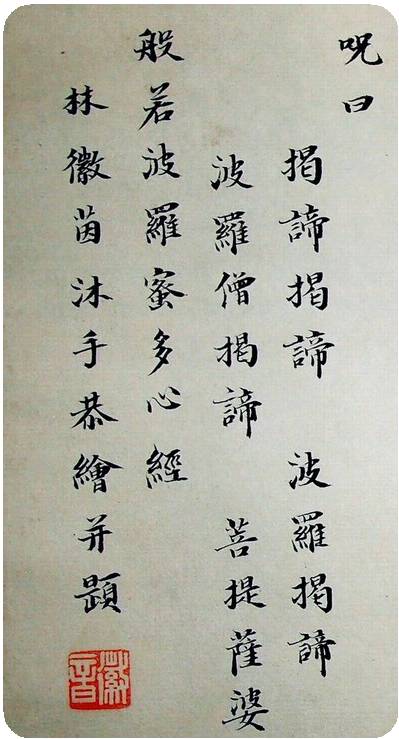 呪曰
揭諦揭諦 波羅揭諦
波羅僧揭諦 菩提薩婆
般若波羅蜜多心經
林徽茵沐手恭繪并題
徽音